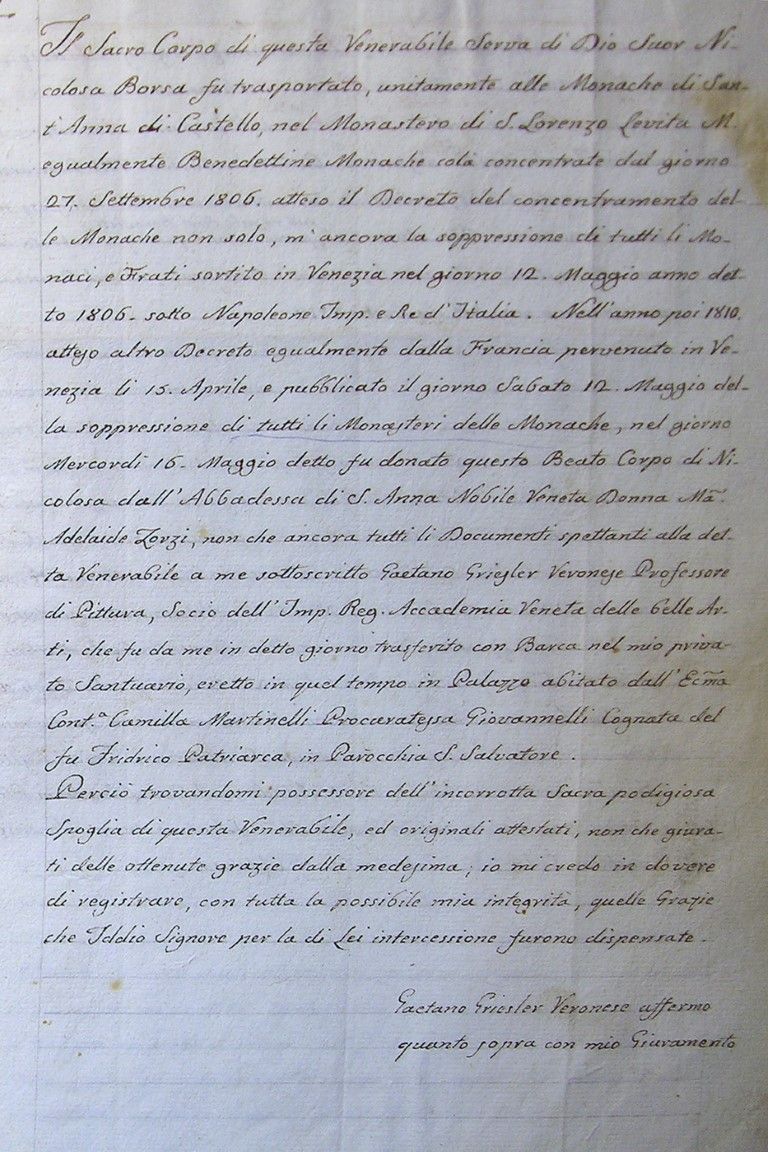 Il Sacro Corpo di questa Venerabile Serva di Dio Suor Ni-
colosa Borsa fu trasportato, unitamente alle Monache di San-
t'Anna di Castello, nel Monastero di S. Lorenzo Levita M.
egualmente Benedettine Monache colà concentrate dal giorno
27. Settembre 1806. atteso il Decreto del concentramento del-
le Monache non solo, m'ancora la soppressione di tutti li Mo-
naci, e Frati sortito in Venezia nel giorno 12. Maggio anno det-
to 1806. sotto Napoleone Imp. e Re d'Italia. Nell'anno poi 1810.
atteso altro Decreto egualmente dalla Francia pervenuto in Ve-
nezia li 15. Aprile, e pubblicato il giorno Sabato 12. Maggio del-
la soppressione di tutti li Monasteri delle Monache, nel giorno
Mercordi 16. Maggio detto fu donato questo Beato Corpo di Ni-
colosa dall'Abbadessa di S. Anna Nobile Veneta Donna Ma.
Adelaide Zorzi, non che ancora tutti li Documenti spettanti alla det-
ta Venerabile a me sottoscritto Gaetano Griesler Veronese Professore
di Pittura, Socio dell'Imp. Reg. Accademia Veneta delle belle Ar-
ti, che fu da me in detto giorno trasferito con Barca nel mio priva-
to Santuario, eretto in quel tempo in Palazzo abitato dall'Ecma
Cont.a Camilla Martinelli Procuratessa Giovannelli Cognata del
fu Fridrico Patriarca, in Parocchia S. Salvatore.
Perciò trovandomi possessore dell'incorrotta Sacra podigiosa
Spoglia di questa Venerabile, ed originali attestati, non che giura-
ti delle ottenute grazie dalla medesima; io mi credo in dovere
di registrare, con tutta la possibile mia integrità, quelle Grazie
che Iddio Signore per la di Lei intercessione furono dispensate.
Gaetano Griesler Veronese affermo
quanto sopra con mio Giuramento